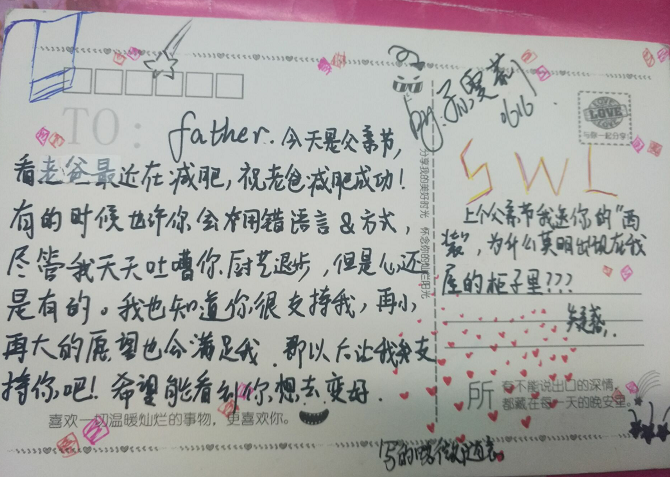 TO:
father. 今天是父亲节,
看老爸最近在减肥,祝老爸减肥成功!
有的时候也许你会用错语言&方式,
尽管我天天吐嘈你厨艺退步,但是心还
是有的。我也知道你很支持我,再小
再大的愿望也会满足我。那以后让我来支
持你吧!希望能看到你想去变好.
喜欢一切温暖灿烂的事物,更喜欢你。
分享我的美好时光 怀念你的灿烂阳光
by:孙雯莉
0616
LOVE
与你一起分享
SWL
上个父亲节我送你的“西
装”,为什么莫明出现在我
屋的柜子里???
疑惑.
所
有不能说出口的深情,
都藏在每一天的晚安里。
写的